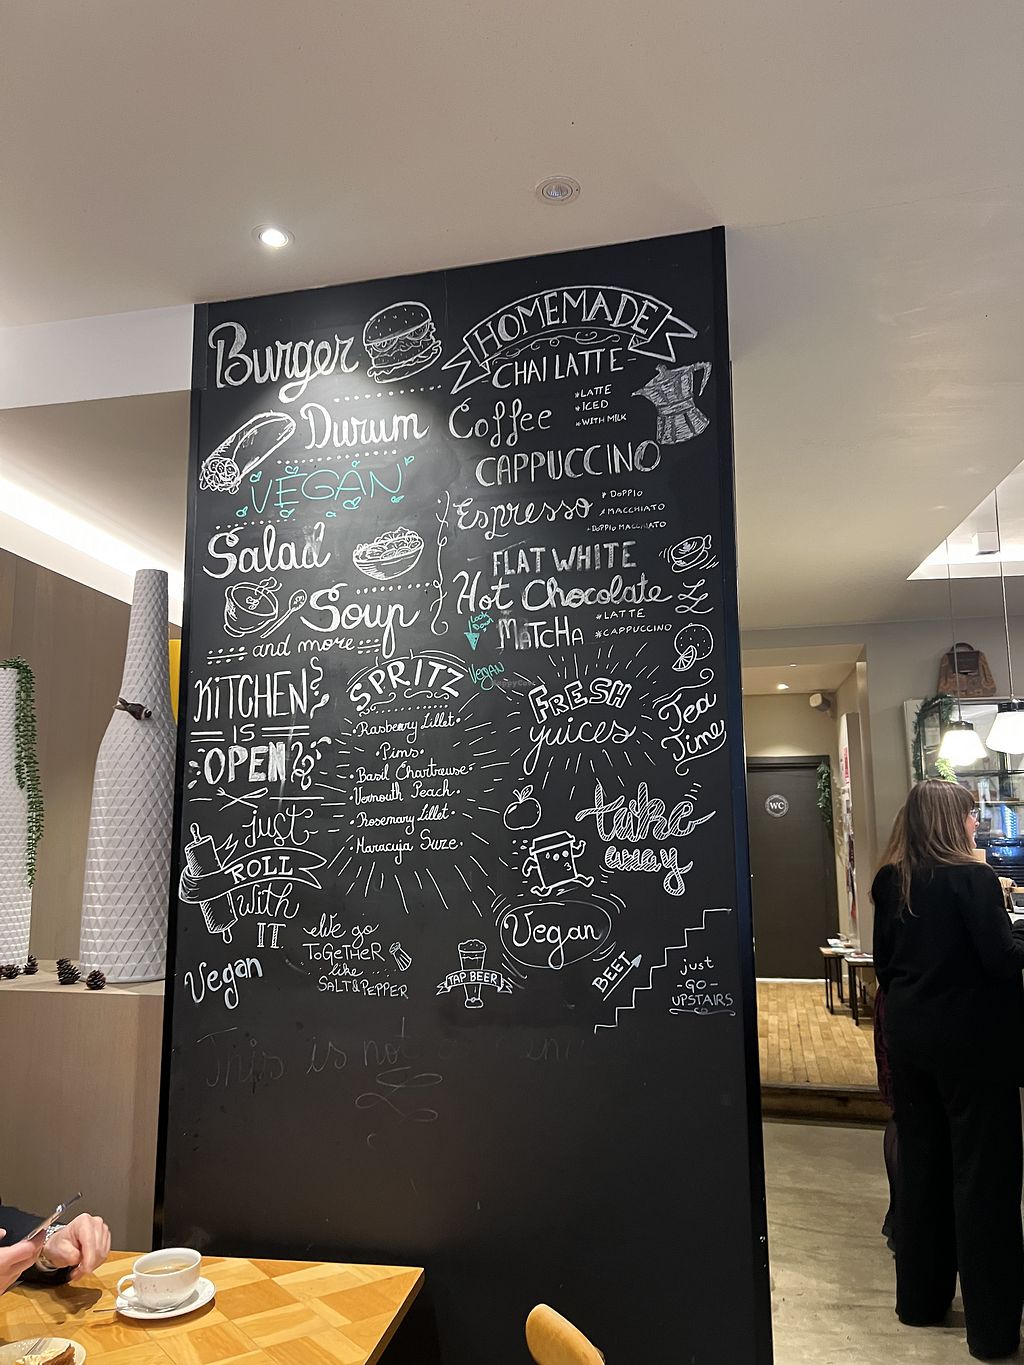 Burger
Durum
VEGAN
Salad
Soup
and more
KITCHEN
IS
OPEN
just
ROLL
with
IT
Vegan
We go
ToGeTHeR
like
SALT&PEPPER
HOMEMADE
CHAI LATTE
Coffee
*LATTE
*ICED
*WITH MILK
CAPPUCCINO
Espresso
* DOPPIO
*MACCHIATO
-DOPPIO MACCHIATO
FLAT WHITE
Hot Chocolate
Look
Down
MATCHA
*LATTE
*CAPPUCCINO
Vegan
SPRITZ
•Rasberry Lillet•
•Pims•
•Basil Chartreuse•
•Vermouth Peach•
•Rosemary Lillet•
•Maracuja Suze•
FRESH
juices
Tea
Time
take
away
Vegan
TAP BEER
BEET
just
-GO-
UPSTAIRS
This is not a
WC